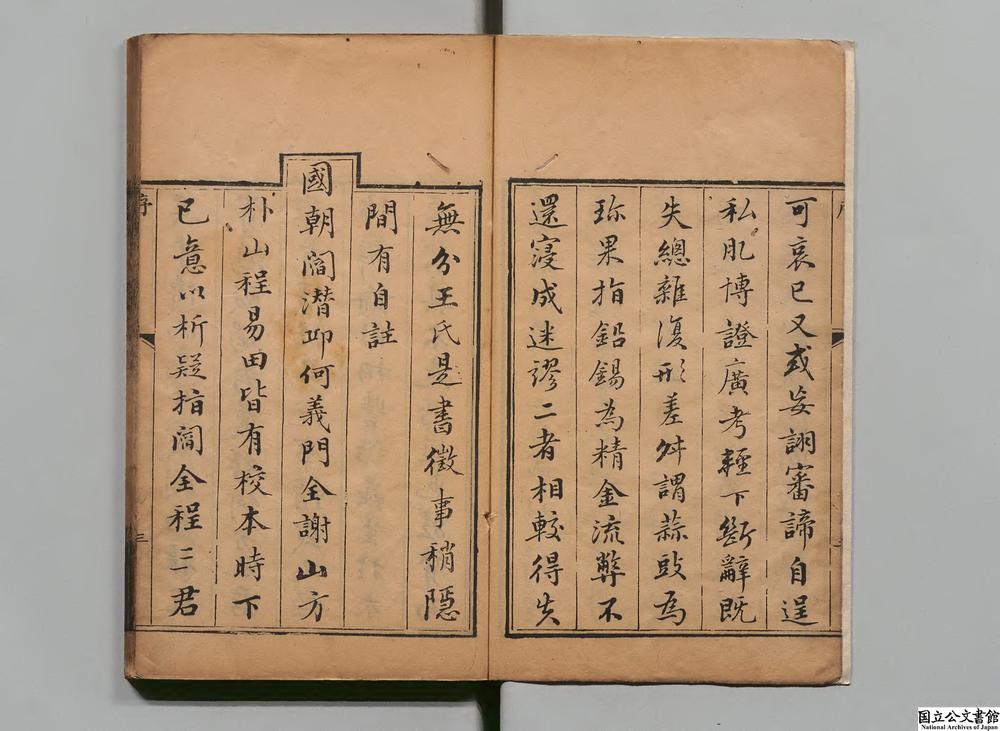 可哀已又或妄詡審諦自逞
私肊博證廣考輕下斷辭既
失總雜復形差舛謂蒜豉為
珎果指鉛錫為精金流弊不
還寖成迷謬二者相較得失
無分王氏是書徵事稍隱
間有自註
國朝閻潛邱何義門全謝山方
朴山程易田皆有校本時下
已意以析疑指閻全程三君
序
三
国立公文書館
National Archives of Japan